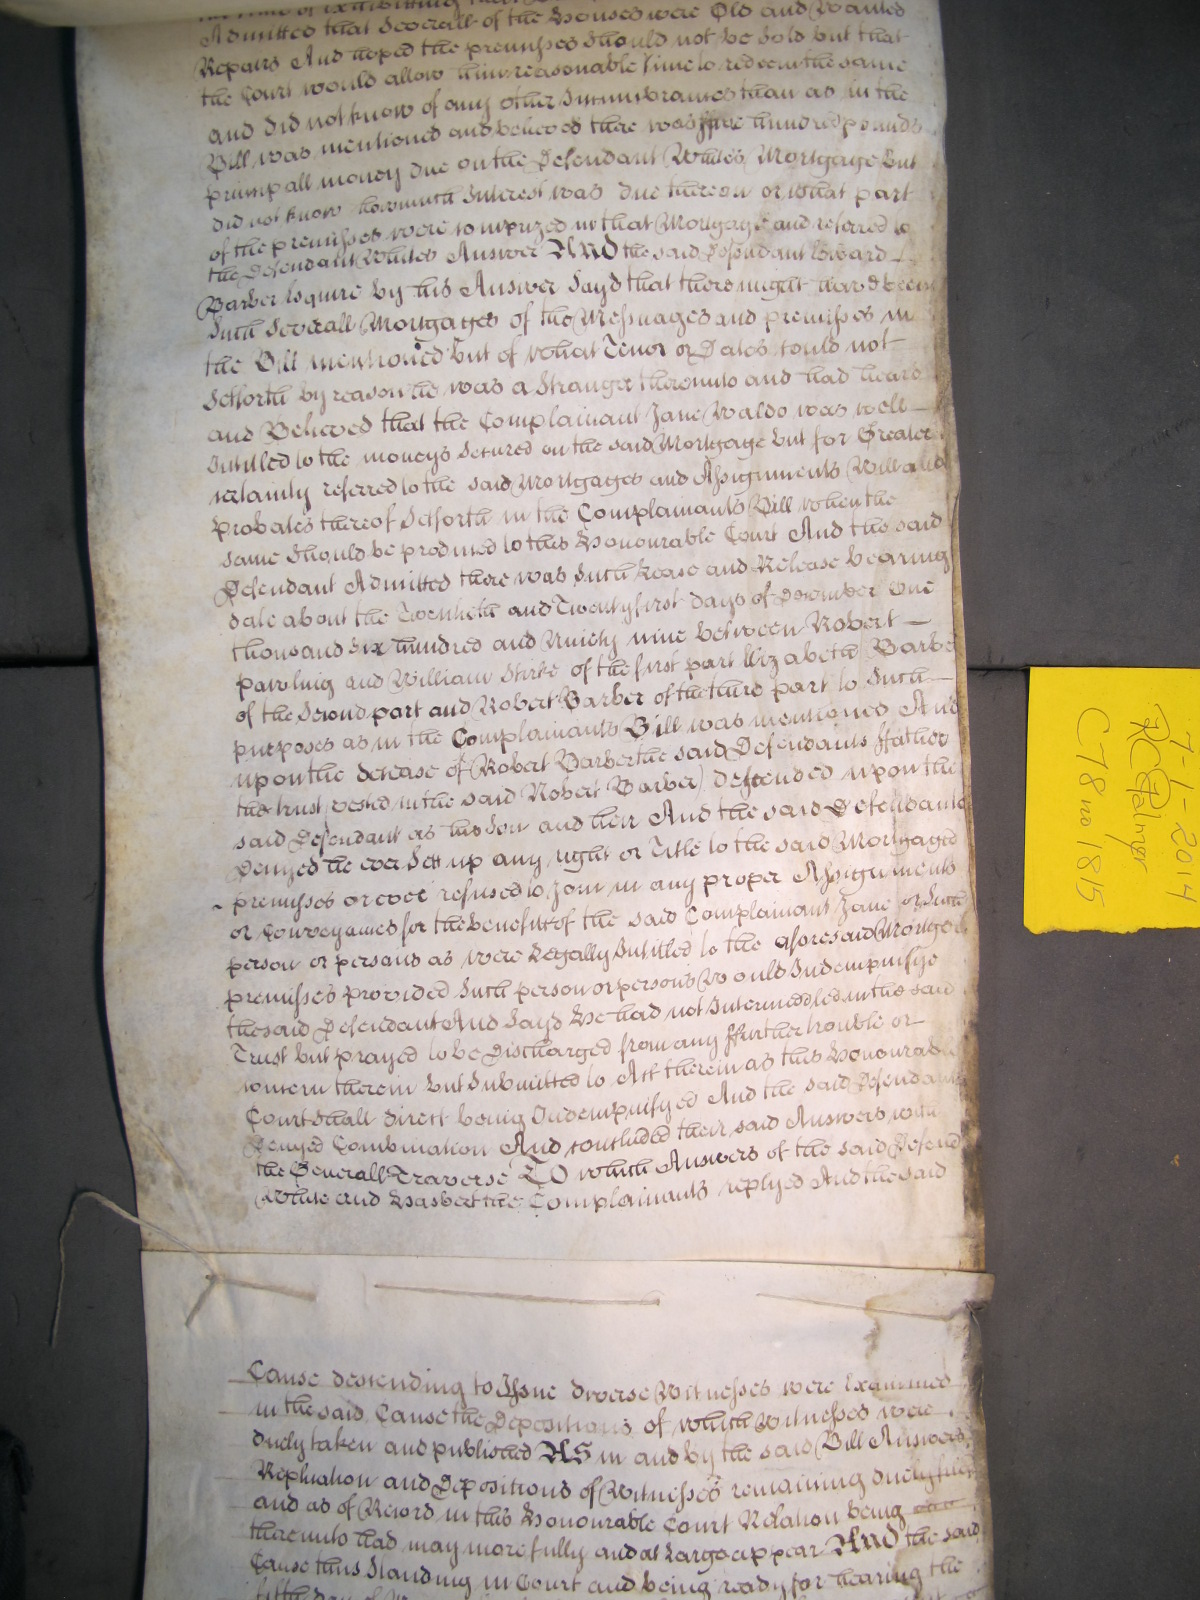 Admitted that Severall of the Houses were Old and Wanted
Repairs And hoped the premisses Should not be Sold but that
the Court would allow him reasonable Time to redeem the same
and did not know of any other Incumbrances than as in the
Bill was mentioned and beleived there was five hundred pounds
principall money due on the Defendant Whites Mortgage but
did not know how much Interest was due thereon or what part
of the premisses were comprized in that Mortgage and referred to
the Defendant Whites Answer AND the said Defendant Edward
Barber Esquire by his Answer Sayd that there might have been
Such Severall Mortgages of the Messuages and premisses in
the Bill mentioned but of what Tenor or Dates could not
Setforth by reason he was a Stranger thereunto and had heard
and Beleived that the Complainant Jane Waldo was well
Intitled to the moneys Secured on the said Mortgage but for Greater
certainty referred to the said Mortgages and Assignments Will and
Probates thereof Setforth in the Complainants Bill when the
same should be produced to this Honourable Court And the said
Defendant Admitted there was Such Lease and Release bearing
date about the Twentieth and Twentyfirst days of December One
thousand Six hundred and Ninety nine between Robert
and William of the first part Elizabeth Barber
of the Second part and Robert Barber of the third part to Such
purposes as in the Complainants Bill was mentioned And
upon the decease of Robert Barber the said Defendants ffather
the trust vested in the said Robert Barber) descended upon the
said Defendant as his Son and heir And the said Defendant
Denyed he ever Sett up any right or Title to the said Mortgaged
premisses or ever refused to Join in any proper Assignments
or Conveyances for the benefitt of the said Complainant Jane or Such
person or persons as were Legally Intitled to the aforesaid Mortgaged
premisses Provided Such person or persons Would Indempnifye
the said Defendant And Sayd He had not Intermeddled in the said
Trust but prayed to be Discharged from any ffurther trouble or
concern therein but Submitted to Act therein as this Honourable
Court shall direct being Indempnifyed And the said Defendants
Denyed Combination And concluded their said Answers with
the Generall Traverse TO which Answers of the said Defend
White and the Complainants replyed And the said
Cause descending to Issue diverse Witnesses were Examined
in the said Cause the Depositions of which Witnesses were
duely taken and published AS in and by the said Bill Answers
Replication and Depositions of Witnesses remaining duely filed
and as of Record in this Honourable Court Relation being
thereunto had may more fully and at Large appear AND the said
Cause thus Standing in Court and being ready for hearing the
7-1-2014
RCPalmer
C78 no 1815